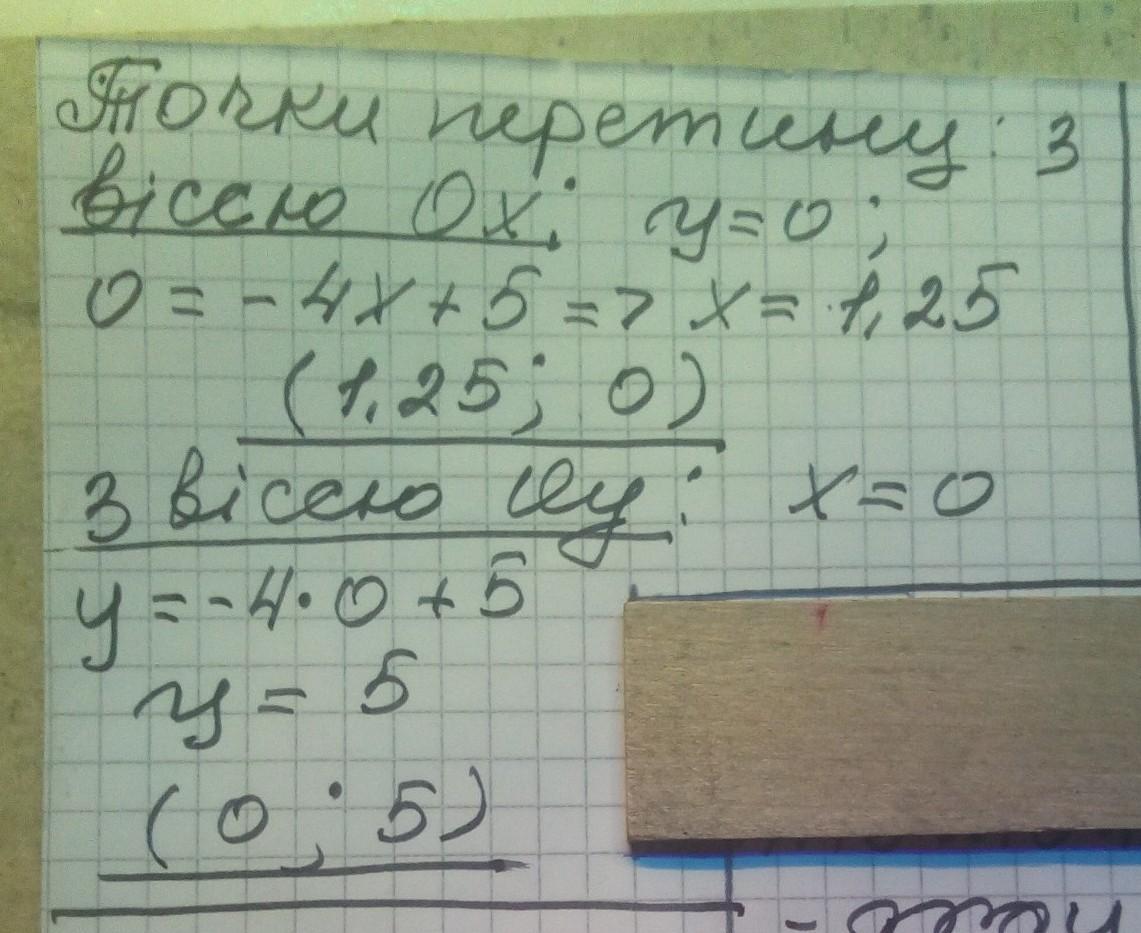 Точки перетину: з
віссю Ox: y=0;
0 = -4x + 5 => x = 1,25
(1,25; 0)
З віссю Oy: x=0
y = -4·0 + 5
y = 5
(0; 5)